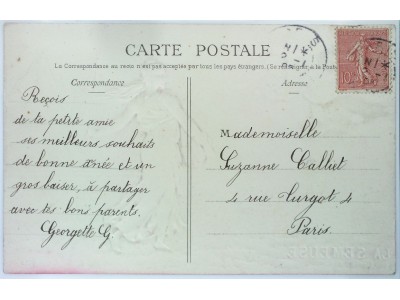 CARTE POSTALE
La Correspondance au recto n'est pas acceptée par tous les pays étrangers. (Se renseigner à la Poste)
Correspondance
Adresse
Reçois
de ta petite amie
ses meilleurs souhaits
de bonne année et un
gros baiser, à partager
avec tes bons parents.
Georgette G.
Mademoiselle
Suzanne Calliet
4 rue Turgot 4
Paris.
10